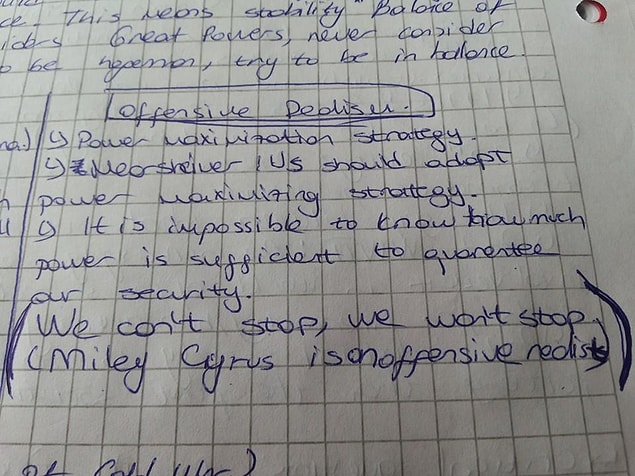 de. This means stability "Balance of
Great Powers, never consider
be hegemon, try to be in balance.
Offensive Realism.
Power maximization strategy.
Mearsheimer / US should adopt
power maximizing strategy.
It is impossible to know how much
power is sufficient to guarentee
our security.
We can't stop, we won't stop.
(Miley Cyrus is an offensive realist)